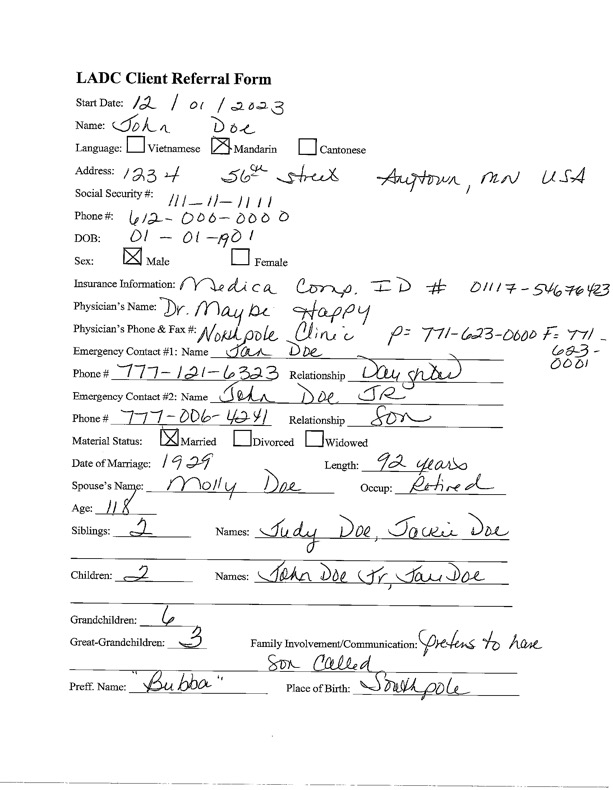 LADC Client Referral Form
Start Date: 12 / 01 / 2023
Name: John Doe
Language: Vietnamese Mandarin Cantonese
Address: 1234 56th street Anytown, MN USA
Social Security #: 111-11-1111
Phone #: 612-000-0000
DOB: 01-01-1901
Sex: Male Female
Insurance Information: Medica Comp. ID # 01117-54676423
Physician's Name: Dr. Maybe Happy
Physician's Phone & Fax #: Northpole Clinic P= 771-623-0000 F= 771-
623-
0001
Emergency Contact #1: Name Jan Doe
Phone # 777-121-6323 Relationship Daughter
Emergency Contact #2: Name John Doe JR
Phone # 777-006-4241 Relationship Son
Material Status: Married Divorced Widowed
Date of Marriage: 1929 Length: 92 years
Spouse's Name: Molly Doe Occup: Retired
Age: 118
Siblings: 2 Names: Judy Doe, Jackie Doe
Children: 2 Names: John Doe Jr, Jan Doe
Grandchildren: 6
Great-Grandchildren: 3 Family Involvement/Communication: prefers to have
Son Called
Preff. Name: "Bubba" Place of Birth: Southpole